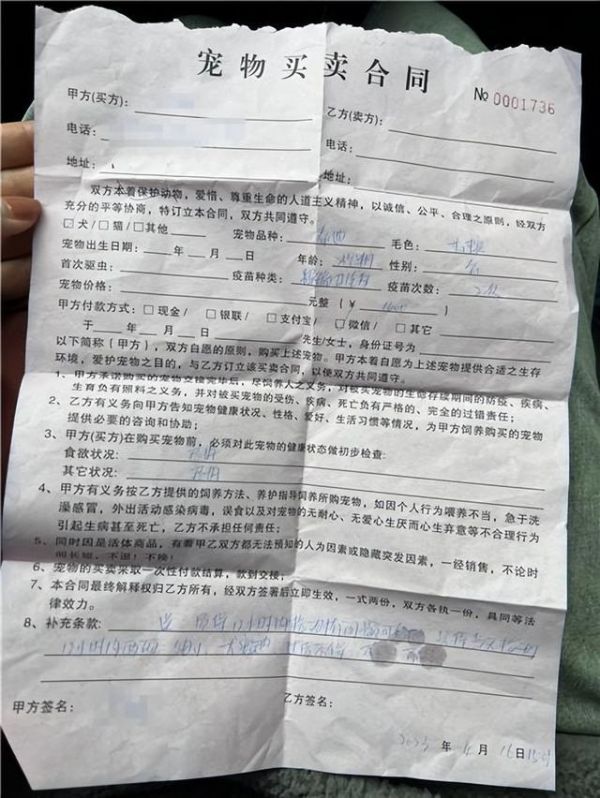 宠物买卖合同
№ 0001736
甲方(买方): 乙方(卖方):
电话: 电话:
地址: 地址:
双方本着保护动物，爱惜、尊重生命的人道主义精神，以诚信、公平、合理之原则，经双方
充分的平等协商，特订立本合同，双方共同遵守。
犬/□猫/□其他 宠物品种: 毛色:
宠物出生日期: 年 月 日 年龄: 性别: 公
首次驱虫: 疫苗种类: 疫苗次数:
宠物价格: 元整(￥ )
甲方付款方式: □现金/□银联/□支付宝/□微信/□其它
于 年 月 日 先生/女士，身份证号为
以下简称(甲方)，双方自愿的原则，购买上述宠物。甲方本着自愿为上述宠物提供合适之生存
环境，爱护宠物之目的，与乙方订立该买卖合同，以便双方共同遵守。
1、甲方承诺购买的宠物交接完毕后，尽饲养人之义务，对被买宠物的生命存续期间的防疫、疾病、
生育负有照料之义务，并对被买宠物的受伤、疾病、死亡负有严格的、完全的过错责任；
2、乙方有义务向甲方告知宠物健康状况、性格、爱好、生活习惯等情况，为甲方饲养购买的宠物
提供必要的咨询和协助；
3、甲方(买方)在购买宠物前，必须对此宠物的健康状态做初步检查:
食欲状况:
其它状况:
4、甲方有义务按乙方提供的饲养方法、养护指导饲养所购宠物，如因个人行为喂养不当，急于洗
澡感冒，外出活动感染病毒，误食以及对宠物的无耐心、无爱心生厌而心生弃意等不合理行为
引起生病甚至死亡，乙方不承担任何责任；
5、同时因是活体商品，有着甲乙双方都无法预知的人为因素或隐藏突发因素，一经销售，不论时
间长短，不退！不换！
6、宠物的买卖采取一次性付款结算，款到交接；
7、本合同最终解释权归乙方所有，经双方签署后立即生效，一式两份，双方各执一份，具同等法
律效力。
8、补充条款:
甲方签名: 乙方签名:
年 4月 16日